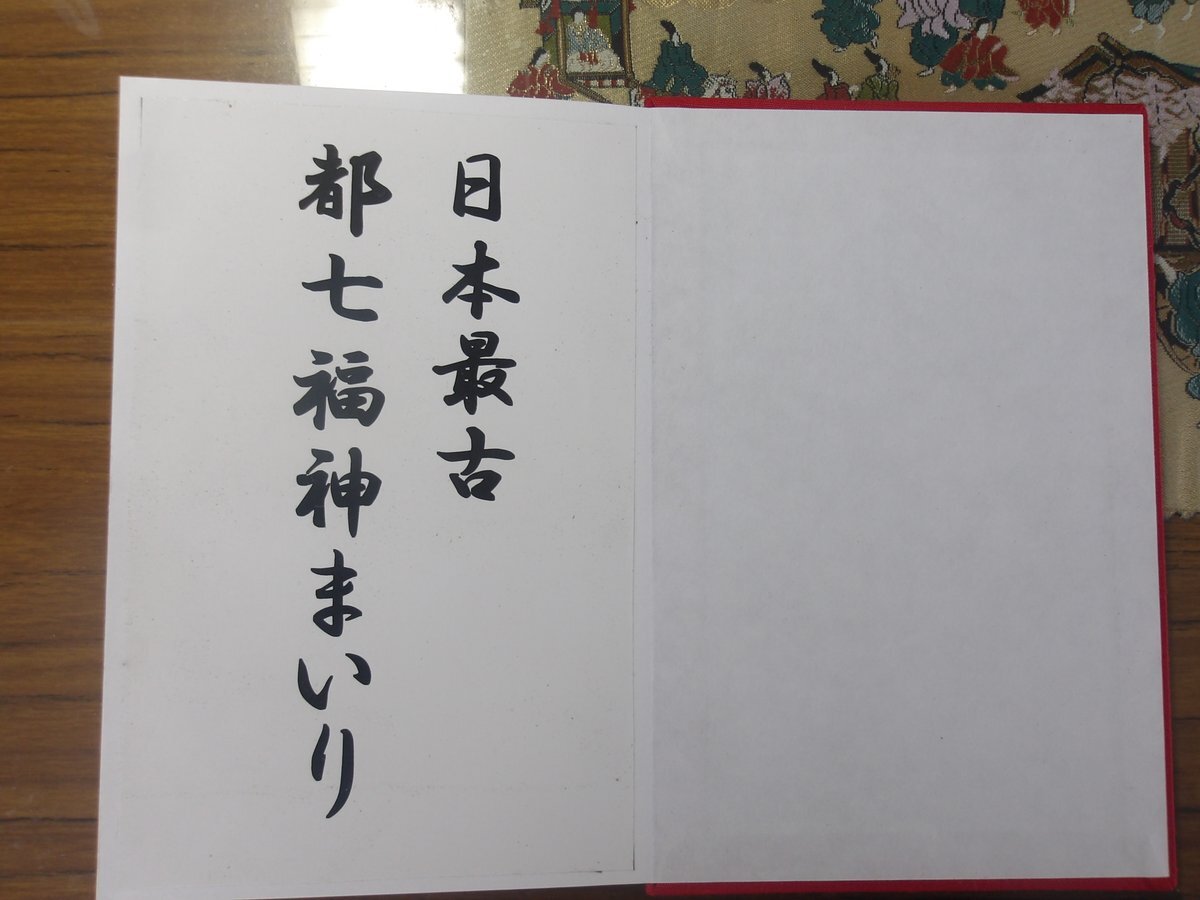 日本最古
都七福神まいり